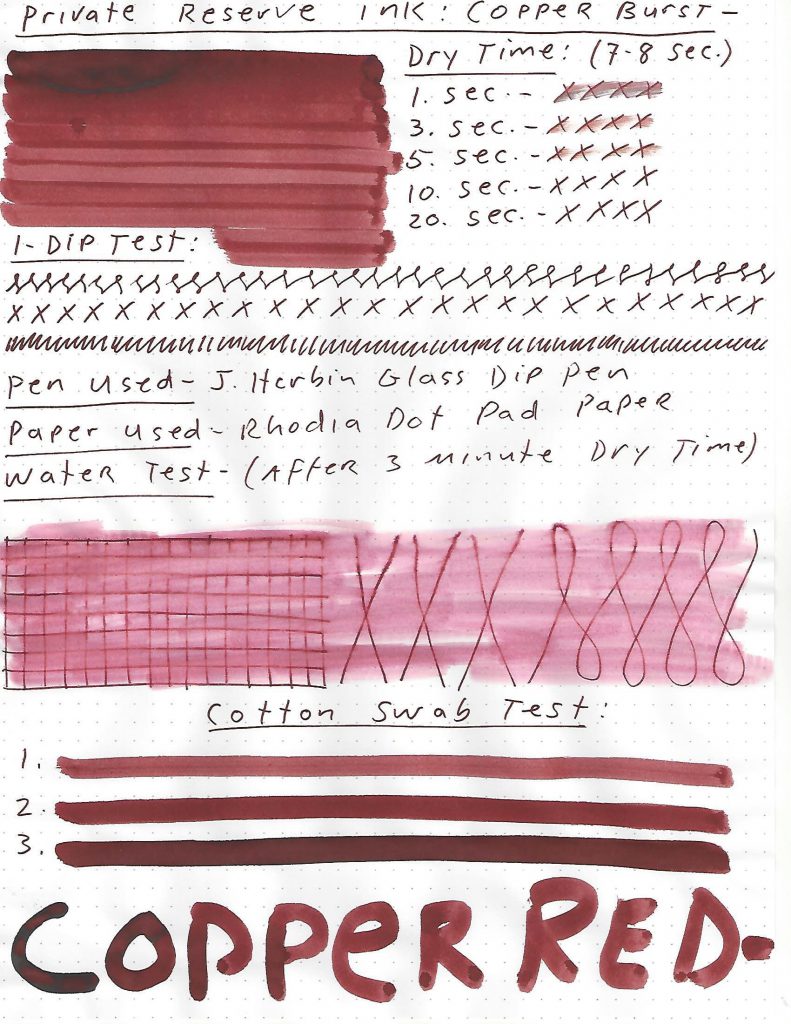 Private Reserve Ink: Copper Burst-
Dry Time: (7-8 sec.)
1. sec.- XXXX
3. sec.- XXXX
5. sec.- XXXX
10. sec.- XXXX
20. sec.- XXXX
1-Dip Test:
XXXXXXXXXXXXXXXXXXXXXXXXXXX
Pen Used- J. Herbin Glass Dip Pen
Paper Used- Rhodia Dot Pad Paper
Water Test- (After 3 minute Dry Time)
XXX
Cotton Swab Test:
1.
2.
3.
COPPER RED-